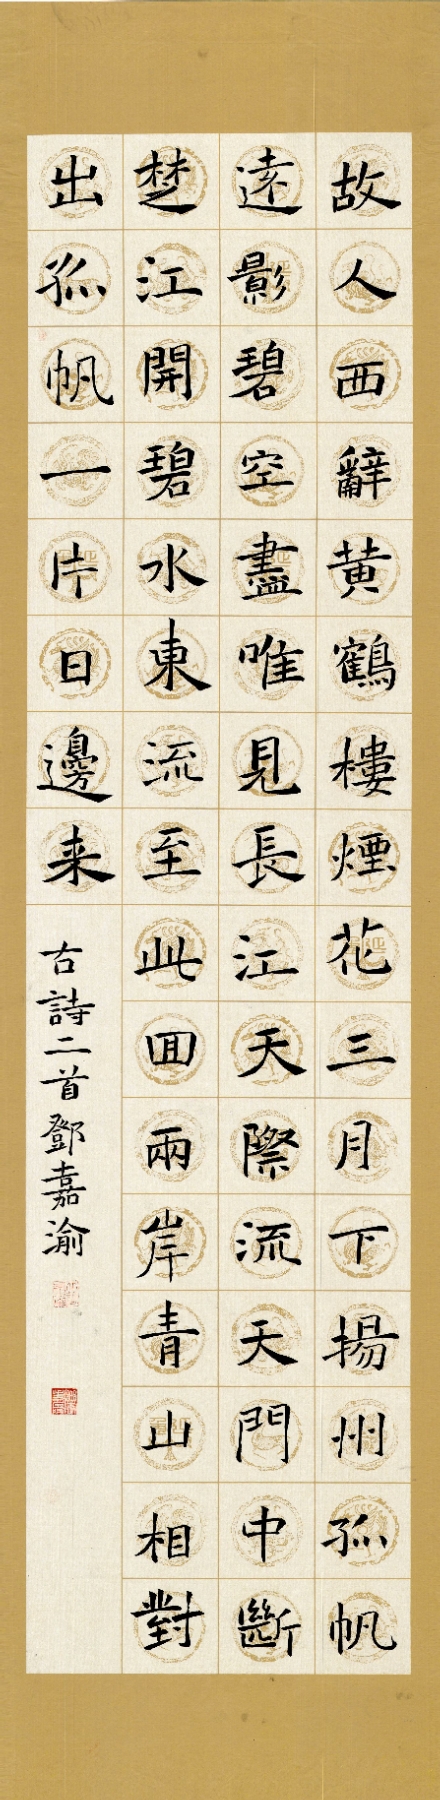 故人西辭黄鶴樓煙花三月下揚州孤帆
遠影碧空盡唯見長江天際流天門中斷
楚江開碧水東流至此回兩岸青山相對
出孤帆一片日邊来
古詩二首鄧嘉渝